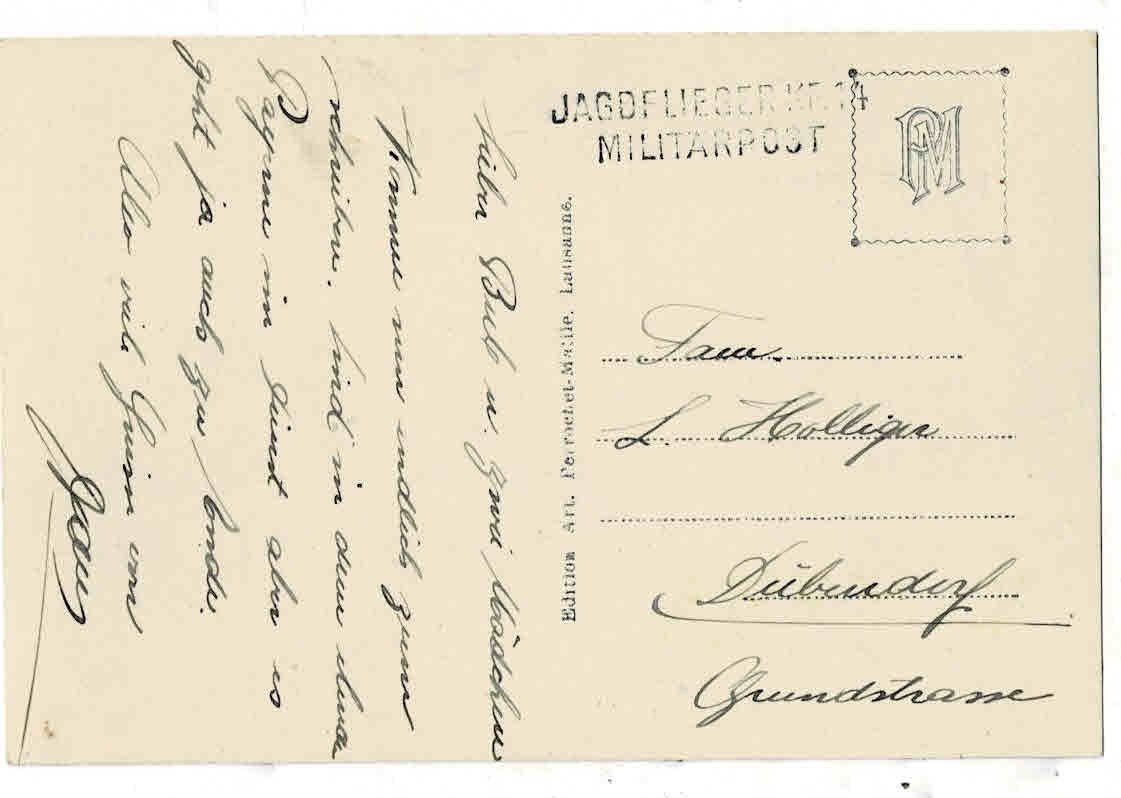 JAGDFLIEGER KP. 14
MILITARPOST
PM
Fam.
L. Holliger
Dübendorf
Grundstrasse
Edition Art. Perrochet-Matile, Lausanne.
Lieber Bub u. zwei Mädchen
Komme nun endlich zum
schreiben. Sind in dem
Payerne im Dienst aber es
geht ja auch zu Ende.
Also viele Grüsse von